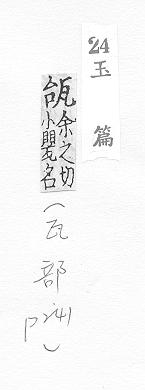 24
玉篇
瓵余之切
小甖名
(瓦部 p241)